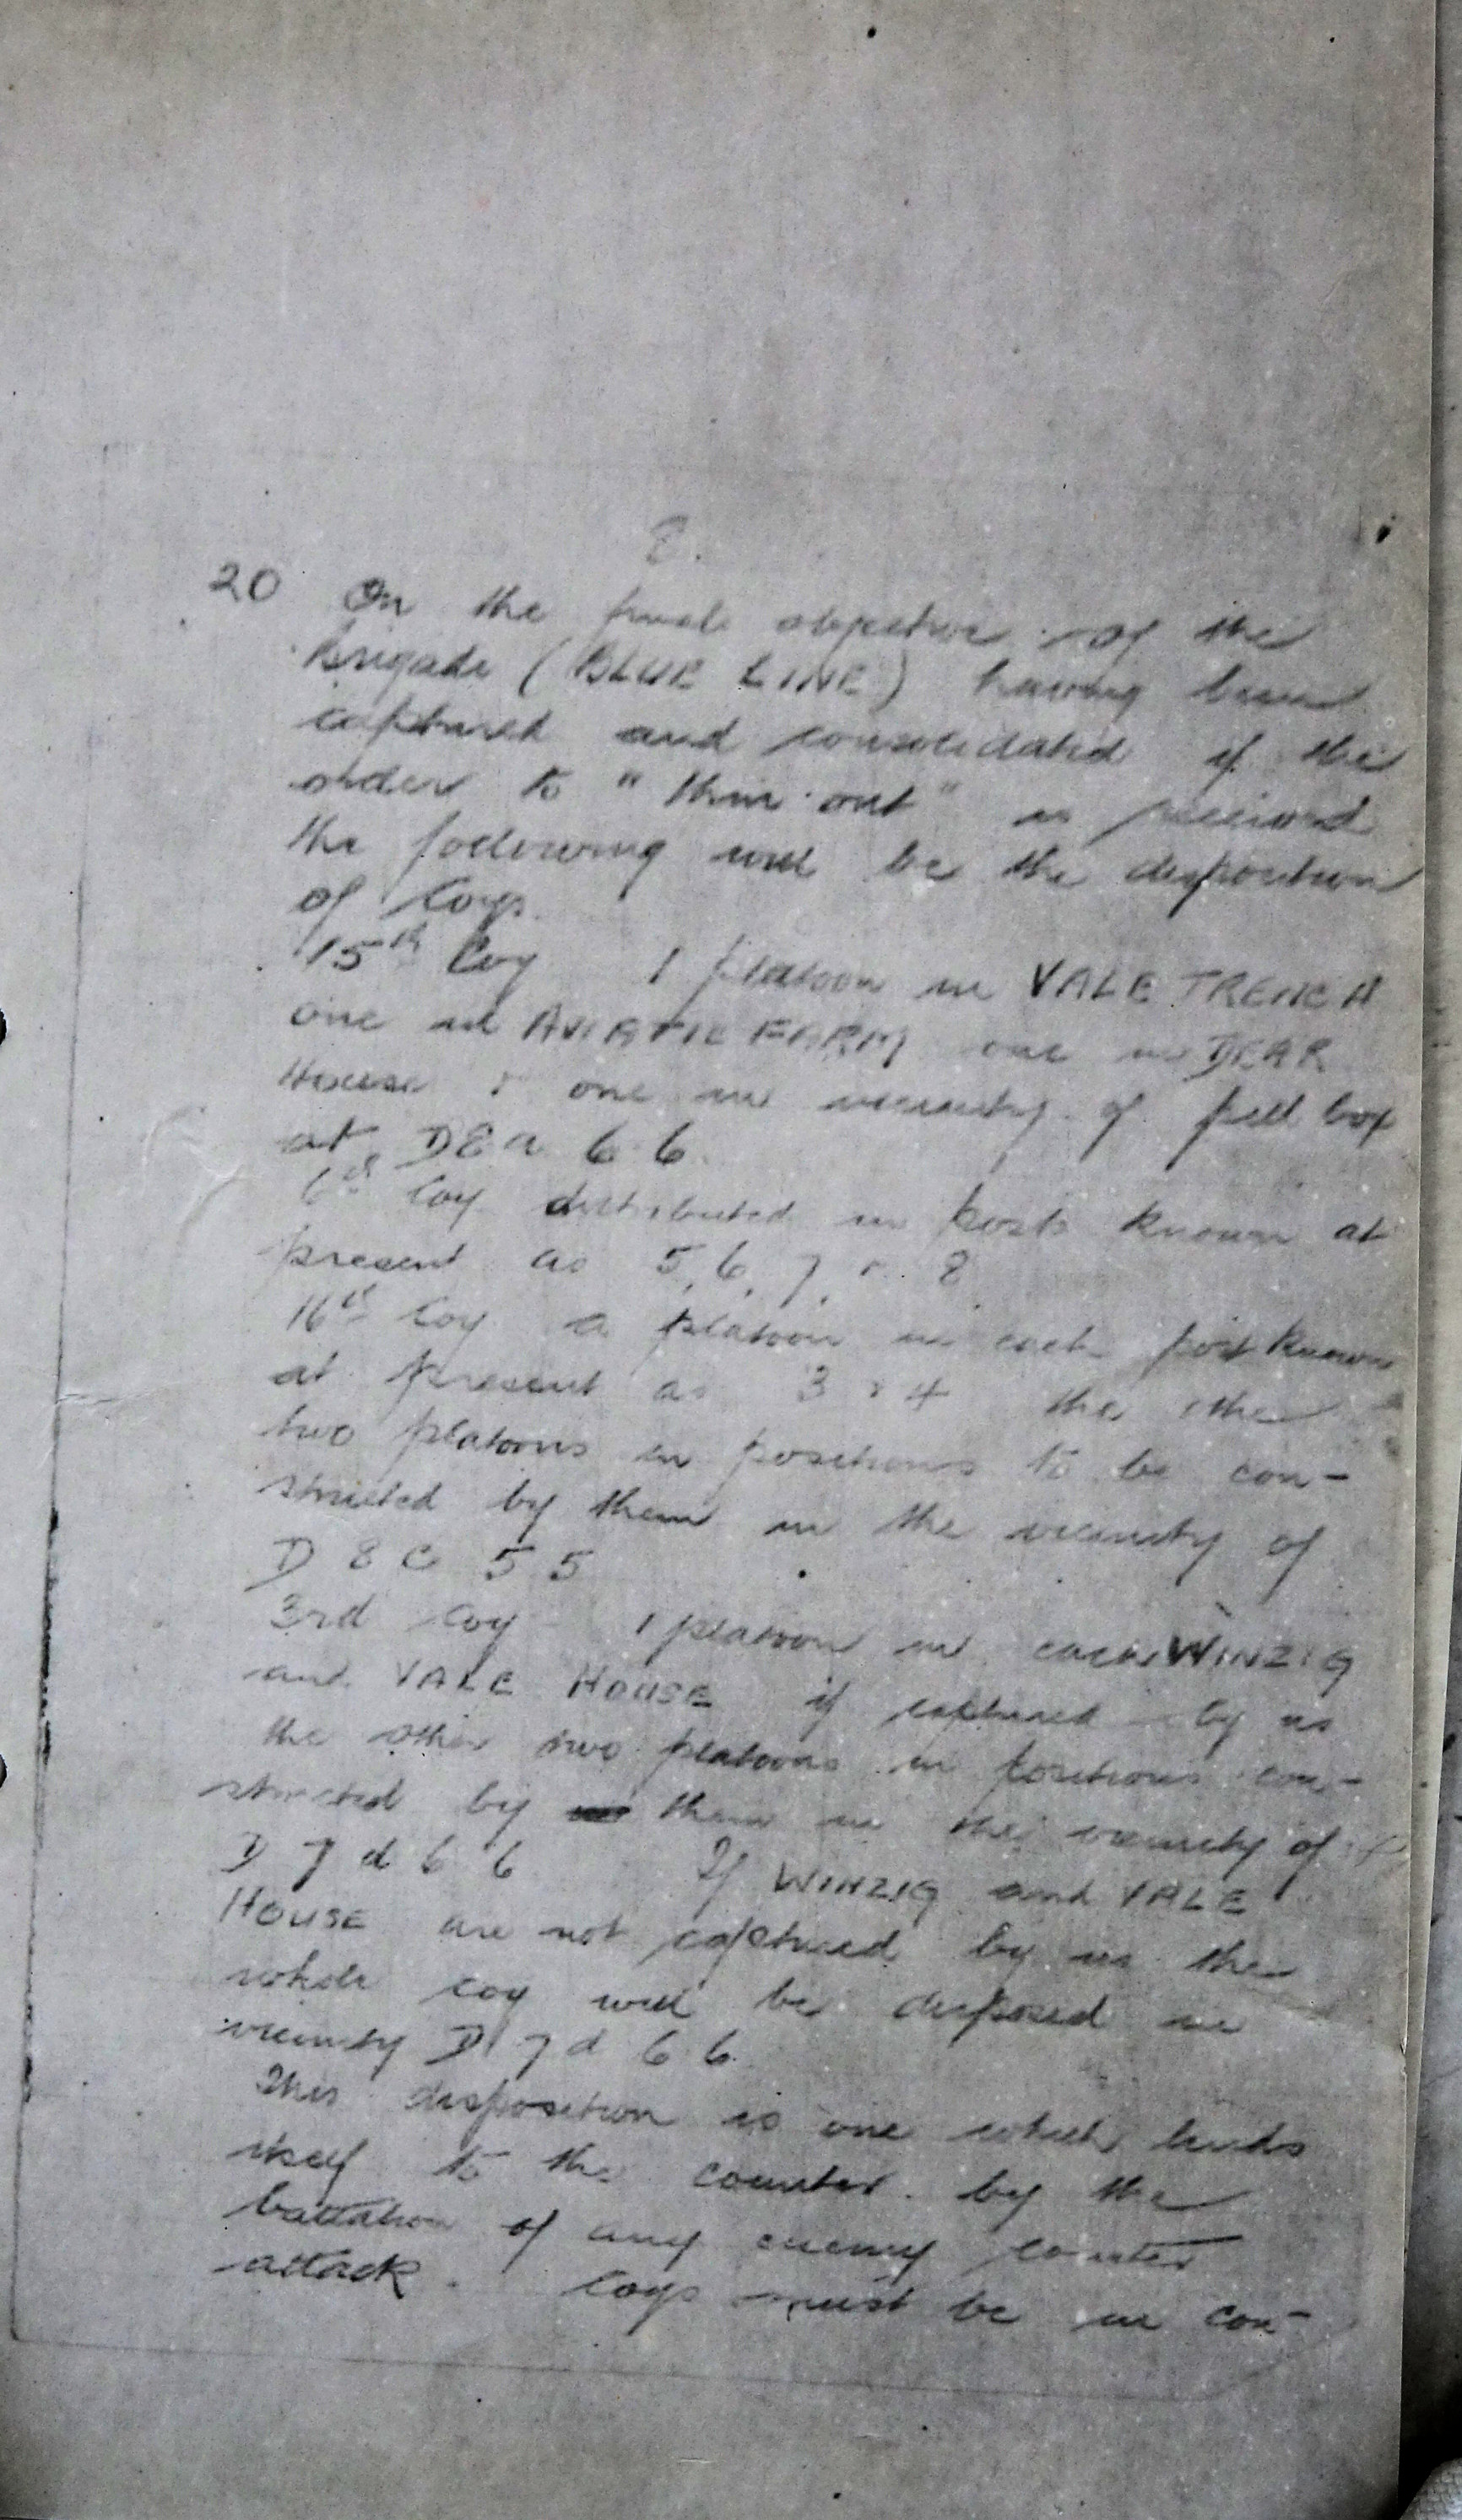 8.
20 On the final objective of the
Brigade (BLUE LINE) having been
captured and consolidated if the
order to "thin out" is received
the following will be the disposition
of Coys.
15th Coy 1 platoon in VALE TRENCH
one in AVIATIK FARM one in DEAR
House & one in vicinity of pill box
at D8a 6 6.
6th Coy distributed in posts known at
present as 5, 6, 7, & 8.
16th Coy a platoon in each post known
at present as 3 & 4 the other
two platoons in positions to be con-
structed by them in the vicinity of
D 8 C 5 5
3rd Coy 1 platoon in each WINZIG
and VALE HOUSE if captured by us
the other two platoons in positions con-
structed by them in the vicinity of
D 7 d 6 6 If WINZIG and VALE
HOUSE are not captured by us the
whole coy will be disposed in
vicinity D 7 d 6 6.
This disposition is one which lends
itself to the counter by the
battalion of any enemy counter
attack. Coys must be in con-